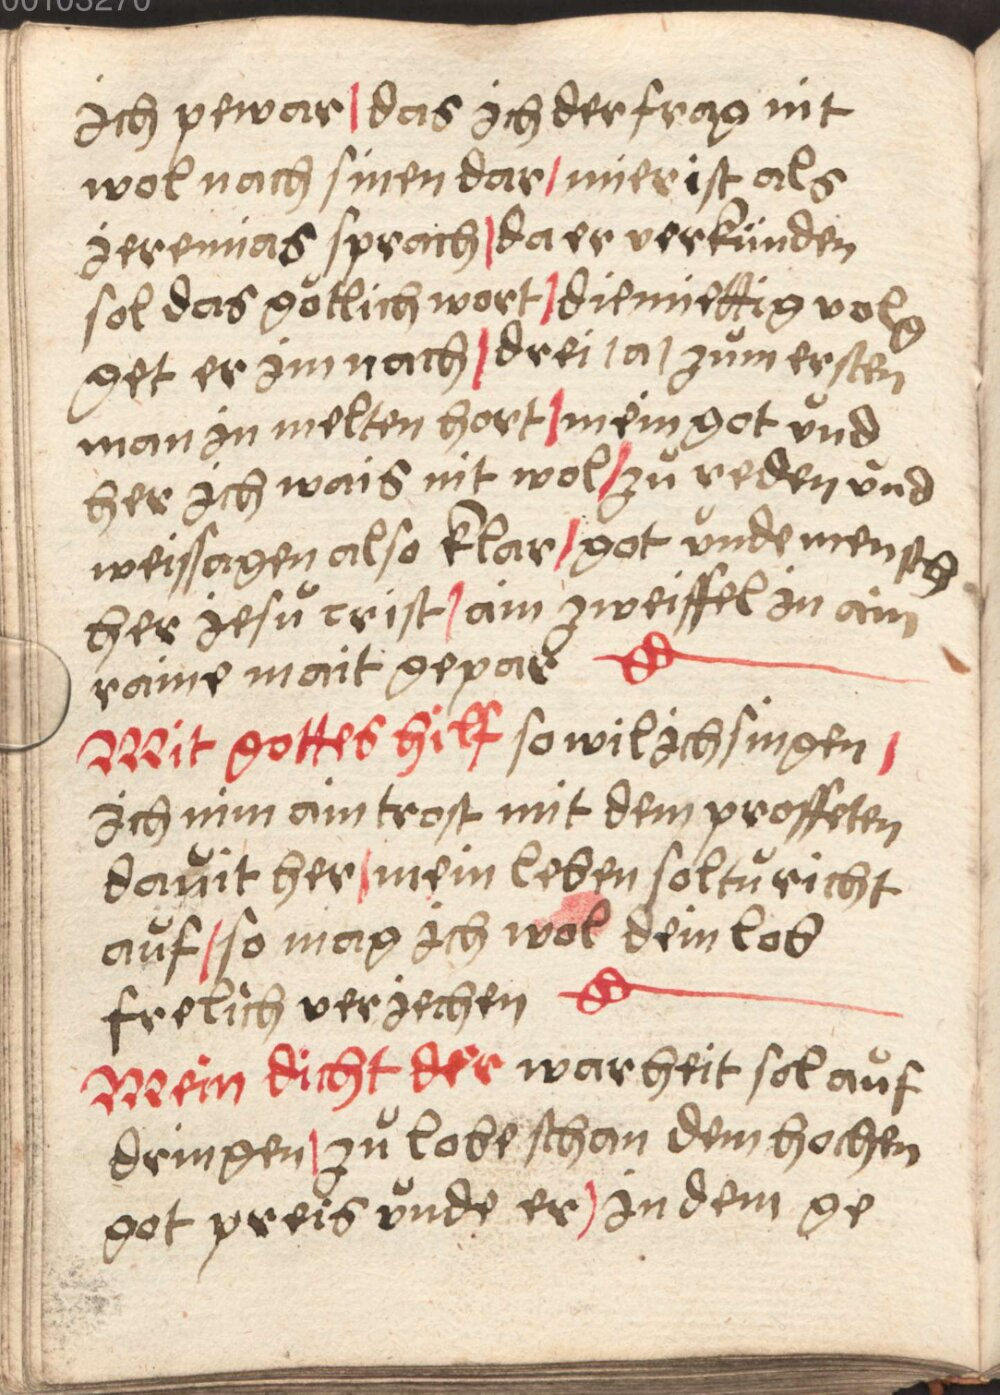 00103270
jch pewar / das jch der frag nit
wol nach sinen dar / mier ist als
jeremias sprach / da er verkünden
sol das götlich wort / die mettig volg
get er jm nach / drei / a / zům ersten
man jn melten hort / mein got vnd
her jch wais nit wol / zů reden vnd
weissagen also klar / got vnde mensch
her jesů crist / ain zweiffel jn ain
raine mait gepar
Mit gottes hilff so wil jch singen /
jch nim ain trost mit dem proffeten
dauit her / mein leben soltů richt
aůf / so mag jch wol dein lob
frelich verjechen
Mein dicht der warheit sol aůf
dringen / zů lobe schan dem hochen
got preis vnde er / jn dem ge